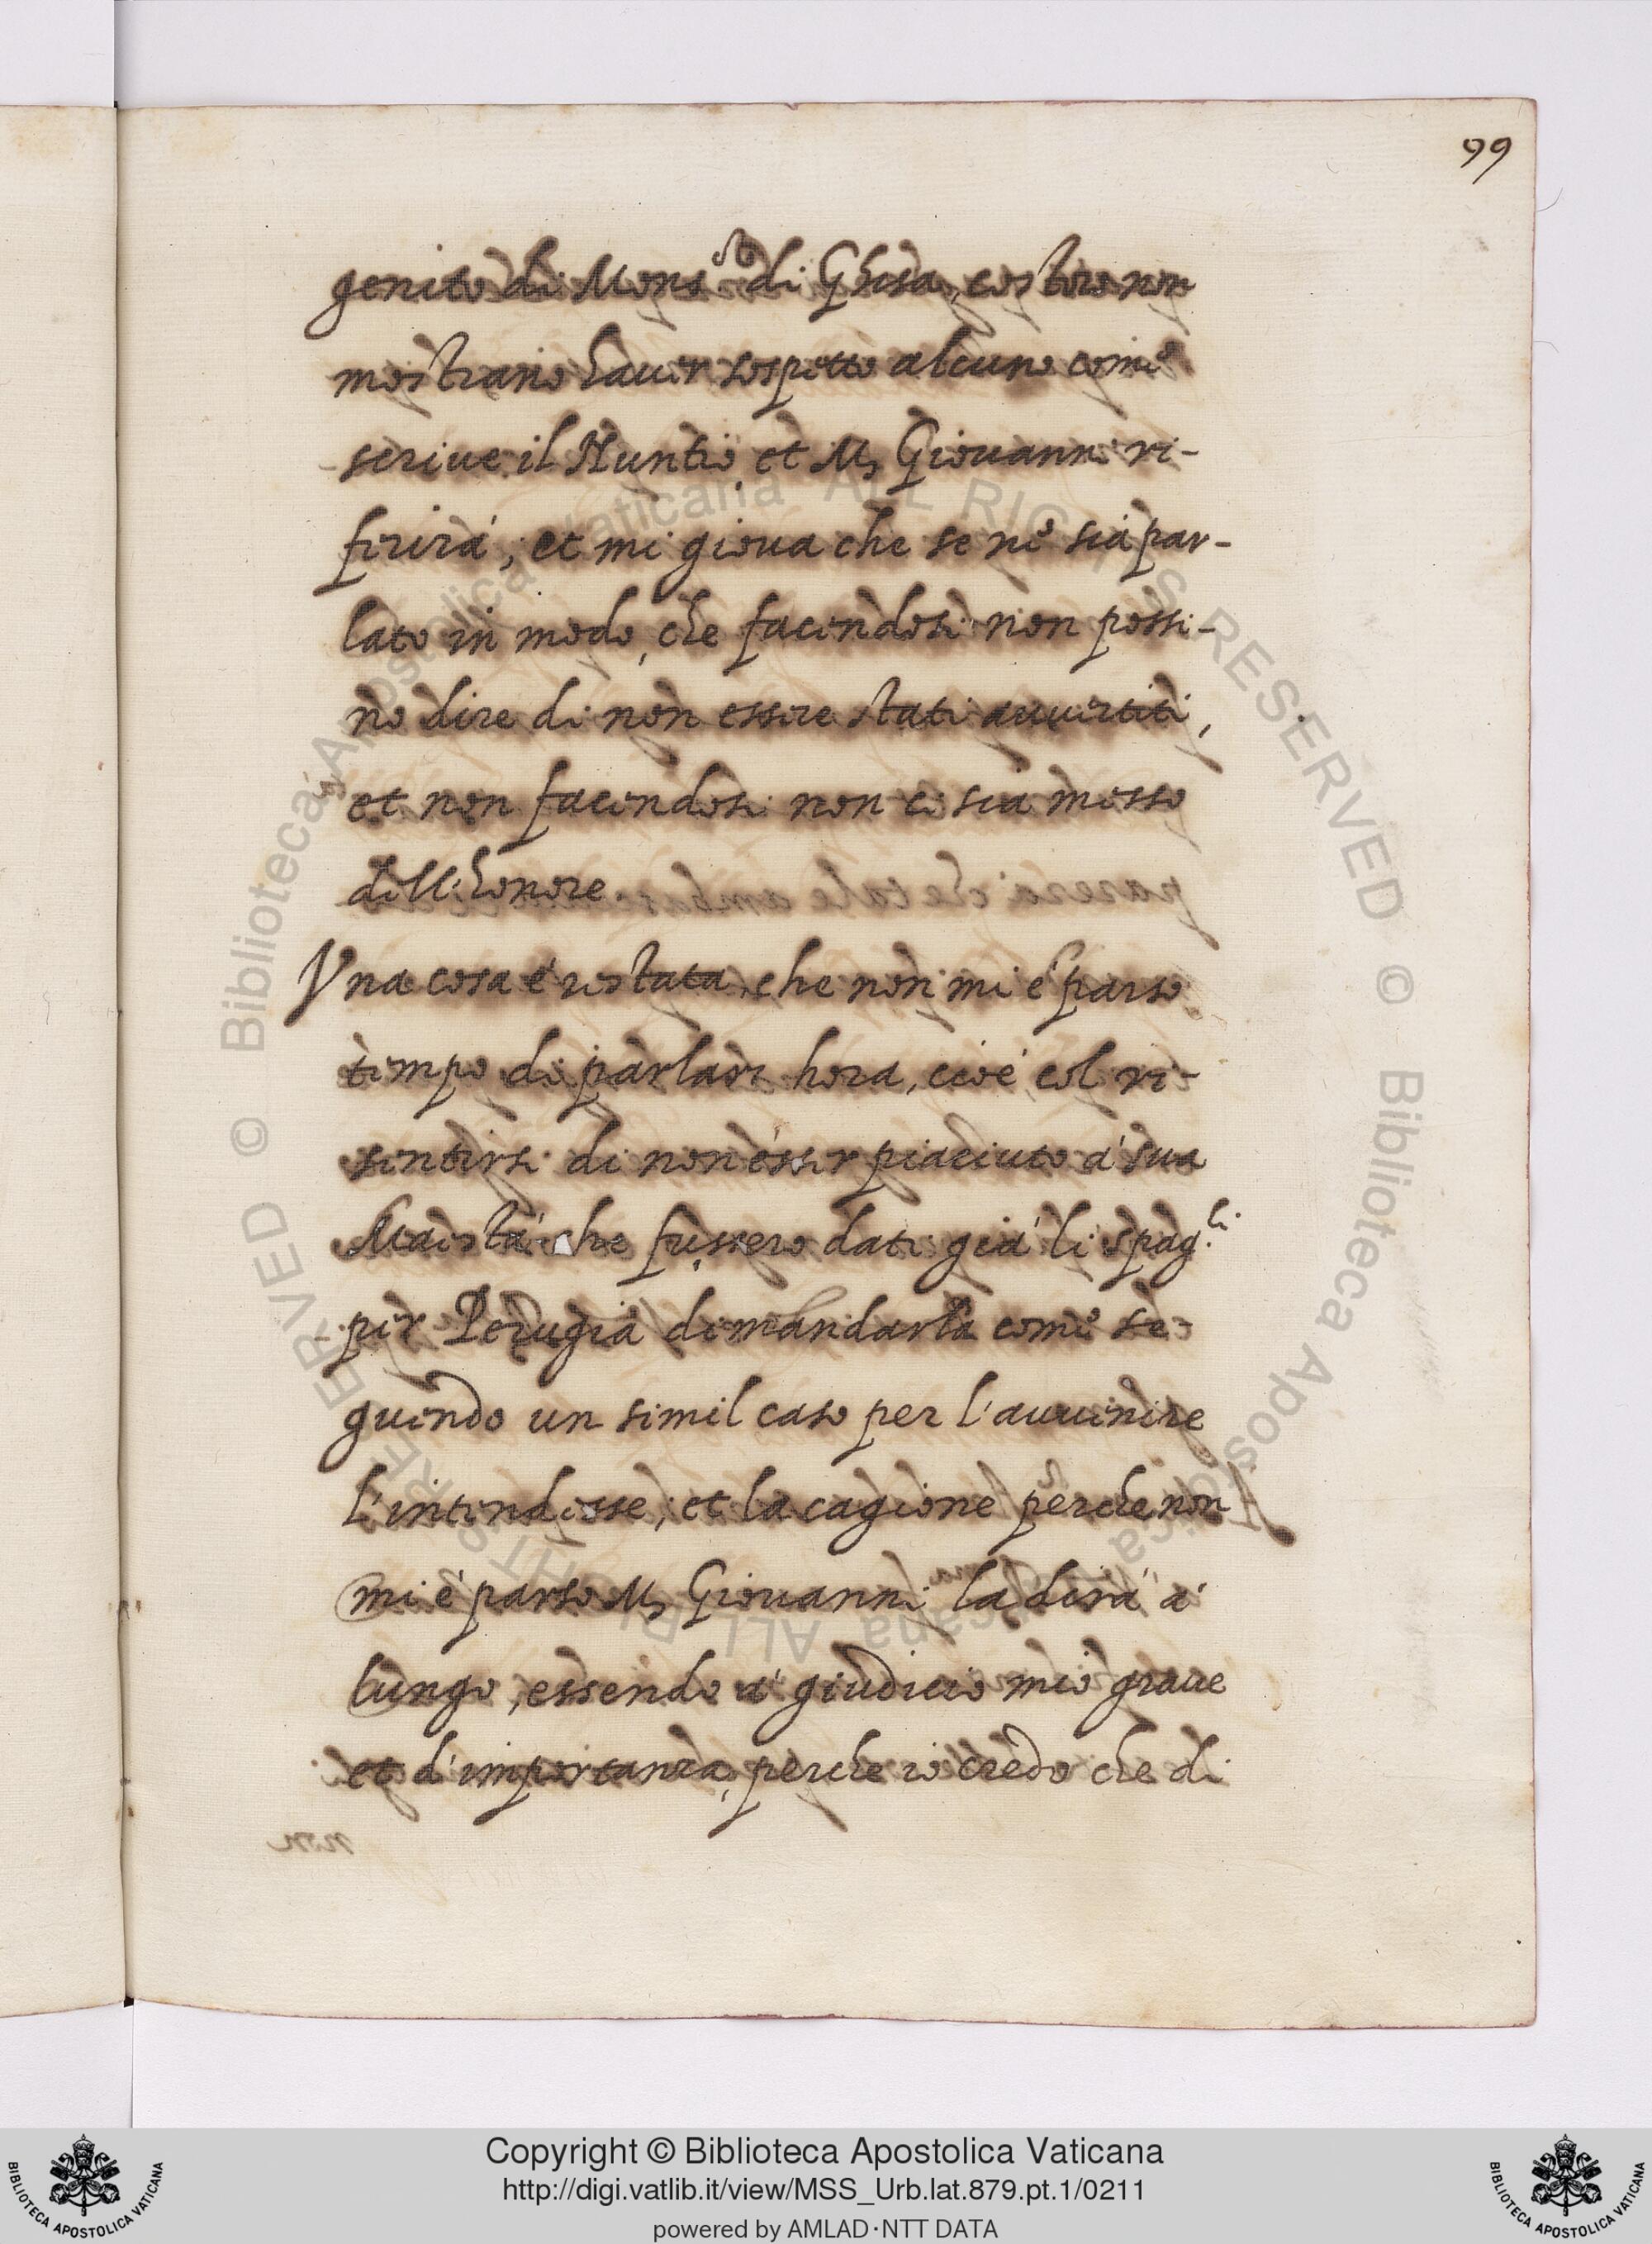 99
genito di Mons.re di Ghisa, costoro non
mostrano hauer sospetto alcuno come
scriue il Nuntio et M. Giouanni ri-
ferirà; et mi gioua che se ne sia par-
lato in modo, che facendosi non possi-
no dire di non essere stati auuertiti,
et non facendosi non ci sia messo
dell'honore
Vna cosa è restata, che non mi è parso
tempo di parlare hora, cioè, col ri-
sentirsi di non esser piaciuto à sua
Maestà che fussero dati già li spag.li
per Perugia dimandarla come se-
guendo un simil caso per l'auuenire
l'intendesse; et la cagione perche non
mi è parso M. Giouanni la dirà à
lungo, essendo à giudicio mio graue
et d'importanza, perche io credo che di
© Biblioteca Apostolica Vaticana ALL RIGHTS RESERVED © Biblioteca Apostolica Vaticana ALL RIGHTS RESERVED
Copyright © Biblioteca Apostolica Vaticana
http://digi.vatlib.it/view/MSS_Urb.lat.879.pt.1/0211
powered by AMLAD·NTT DATA
BIBLIOTECA APOSTOLICA VATICANA
BIBLIOTECA APOSTOLICA VATICANA